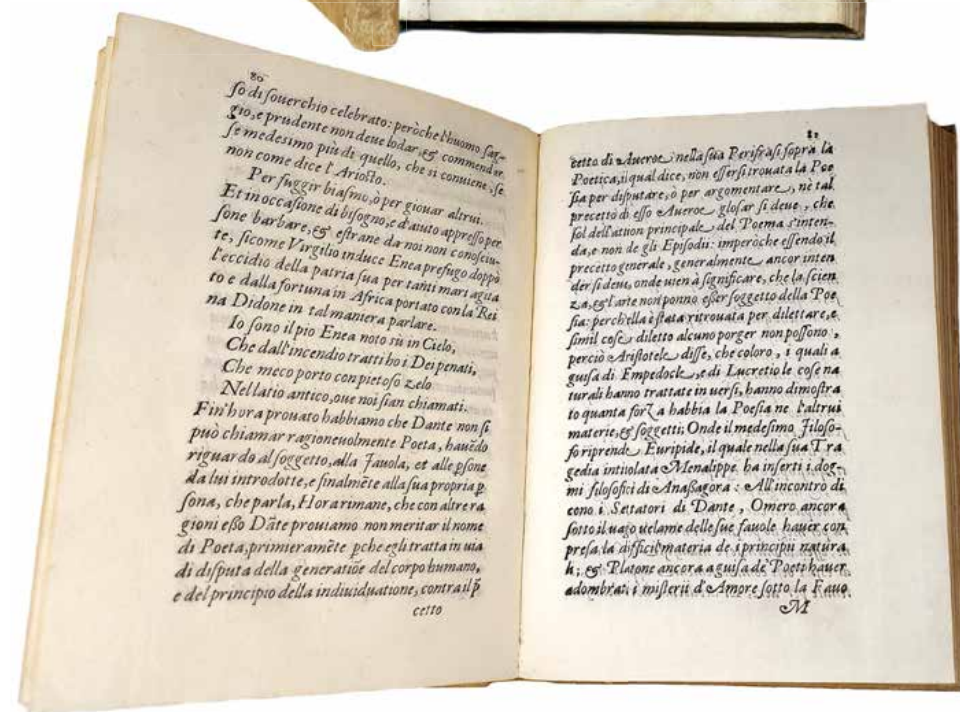 80
so di souerchio celebrato: peròche l'huomo sag-
gio, e prudente non deue lodar, & commendar
se medesimo più di quello, che si conuiene, se
non come dice l'Ariosto.
Per fuggir biasmo, ò per giouar altrui.
Et in occasione di bisogno, e d'aiuto appresso per
sone barbare, & estrane da noi non conosciu-
te, sicome Virgilio induce Enea prefugo doppò
l'eccidio della patria sua per tanti mari agita
to e dalla fortuna in Africa portato con la Rei
na Didone in tal maniera parlare.
Io sono il pio Enea noto sù in Cielo,
Che dall'incendio tratti ho i Dei penati,
Che meco porto con pietoso zelo
Nel latio antico, oue noi sian chiamati.
Fin'hora prouato habbiamo che Dante non si
può chiamar ragioneuolmente Poeta, hauẽdo
riguardo al soggetto, alla Fauola, et alle ꝑsone
da lui introdotte, e finalmẽte alla sua propria ꝑ
sona, che parla, Hora rimane, che con altre ra
gioni esso Dãte prouiamo non meritar il nome
di Poeta, primieramẽte ꝑche egli tratta in uia
di disputa della generatiõe del corpo humano,
e del principio della indiuiduatione, contra il p̃
cetto
81
cetto di Aueroe nella sua Perifrasi sopra la
Poetica, il qual dice, non essersi trouata la Poe
sia per disputare, ò per argomentare, nè tal
precetto di esso Aueroe glosar si deue, che
sol dell'attion principale del Poema s'inten-
da, e non de gli Episodii: imperoche essendo il
precetto generale, generalmente ancor inten
der si deui, onde uien à significare, che la scien
za, & l'arte non ponno esser soggetto della Poe
sia: perch'ella è stata ritrouata per dilettare, e
simil cose diletto alcuno porger non possono,
perciò Aristotele disse, che coloro, i quali a
guisa di Empedocle, e di Lucretio le cose na
turali hanno trattate in uersi, hanno dimostra
to quanta forza habbia la Poesia ne l'altrui
materie, & soggetti; Onde il medesimo Filoso-
fo riprende Euripide, il quale nella sua Tra
gedia intitolata Menalippe ha inserti i dog-
mi filosofici di Anassagora: All'incontro di
cono i Settatori di Dante, Omero ancora
sotto il uago uelame delle sue fauole hauer con
presa la difficil materia de i principii natura
li; & Platone ancora a guisa de' Poeti hauer
adombrati i misterii d'Amore sotto la Fauo
M